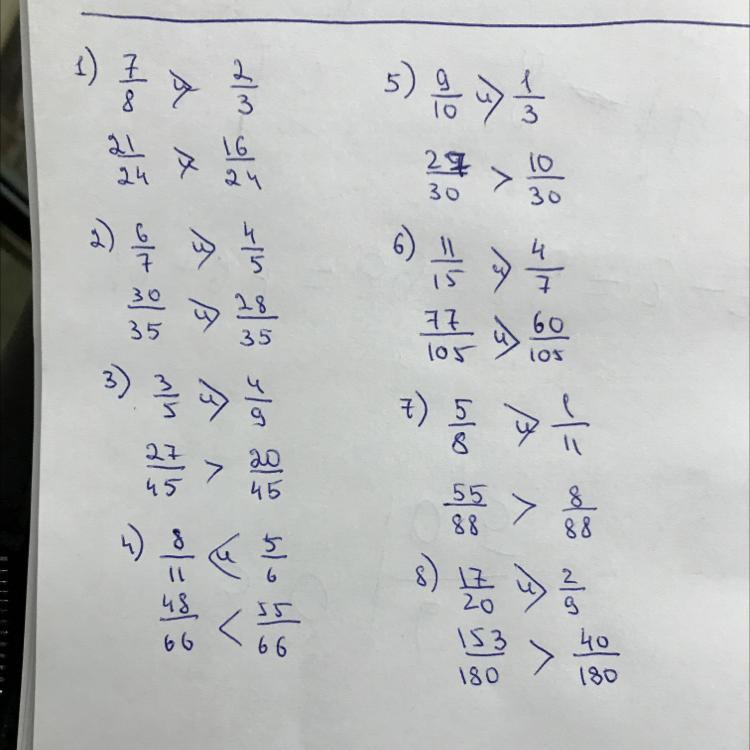 1) 7/8 > 2/3
21/24 > 16/24
2) 6/7 и > 4/5
30/35 и > 28/35
3) 3/5 и > 4/9
27/45 > 20/45
4) 8/11 и < 5/6
48/66 < 55/66
5) 9/10 и > 1/3
27/30 > 10/30
6) 11/15 и > 4/7
77/105 и > 60/105
7) 5/8 и > 1/11
55/88 > 8/88
8) 17/20 и > 2/9
153/180 > 40/180